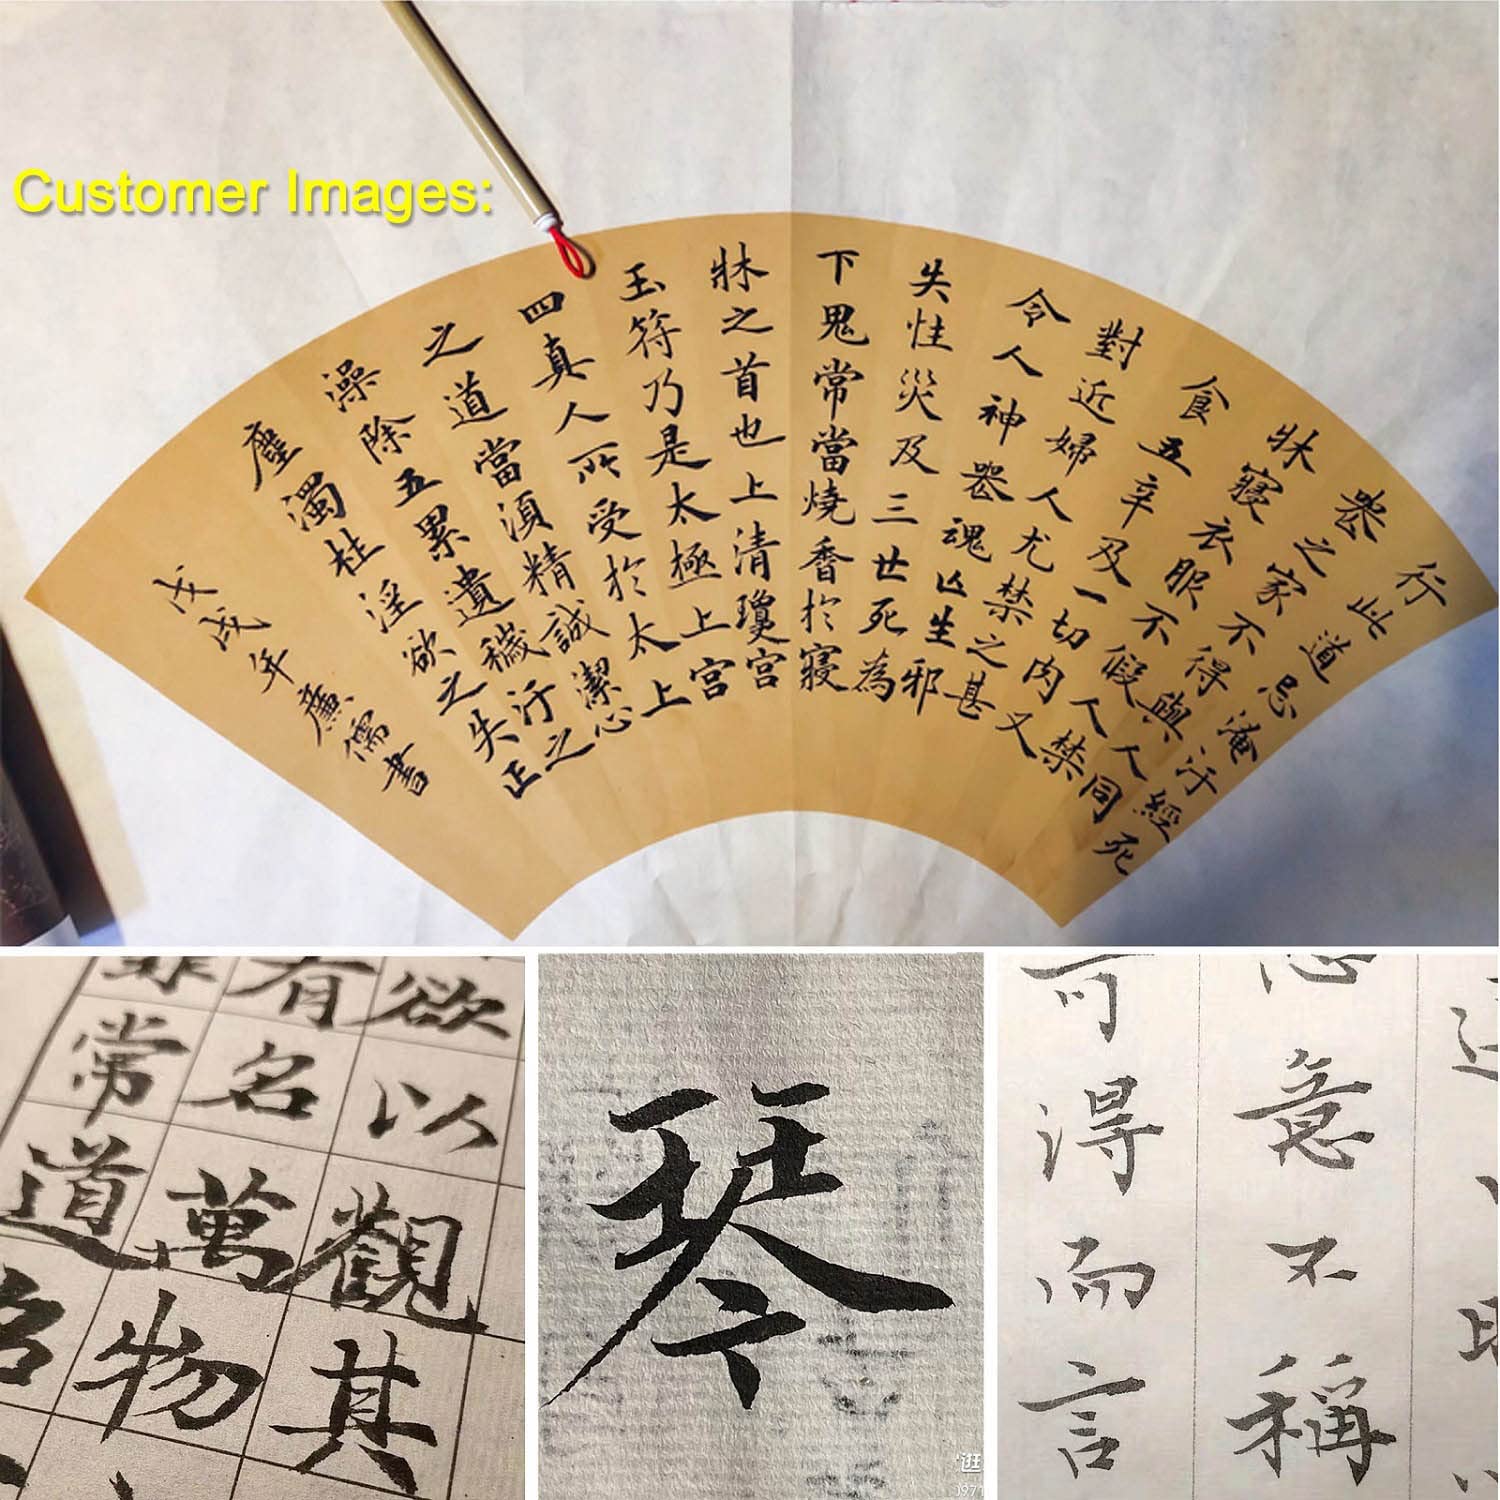 Customer Images:
行此道忌淹汙經死
喪之家不得與人同
牀寢衣服不假人禁
食五辛及一切肉又
對近婦人尤禁之甚
令人神喪魂亡生邪
失性災及三世死為
下鬼常當燒香於寢
牀之首也上清瓊宮
玉符乃是太極上宮
四真人所受於太上
之道當須精誠潔心
澡除五累遺穢汙之
塵濁杜淫欲之失正
戊戌年廣儒書
欲以觀其
有名萬物
非常道
琴
逛
意不稱
可得而言